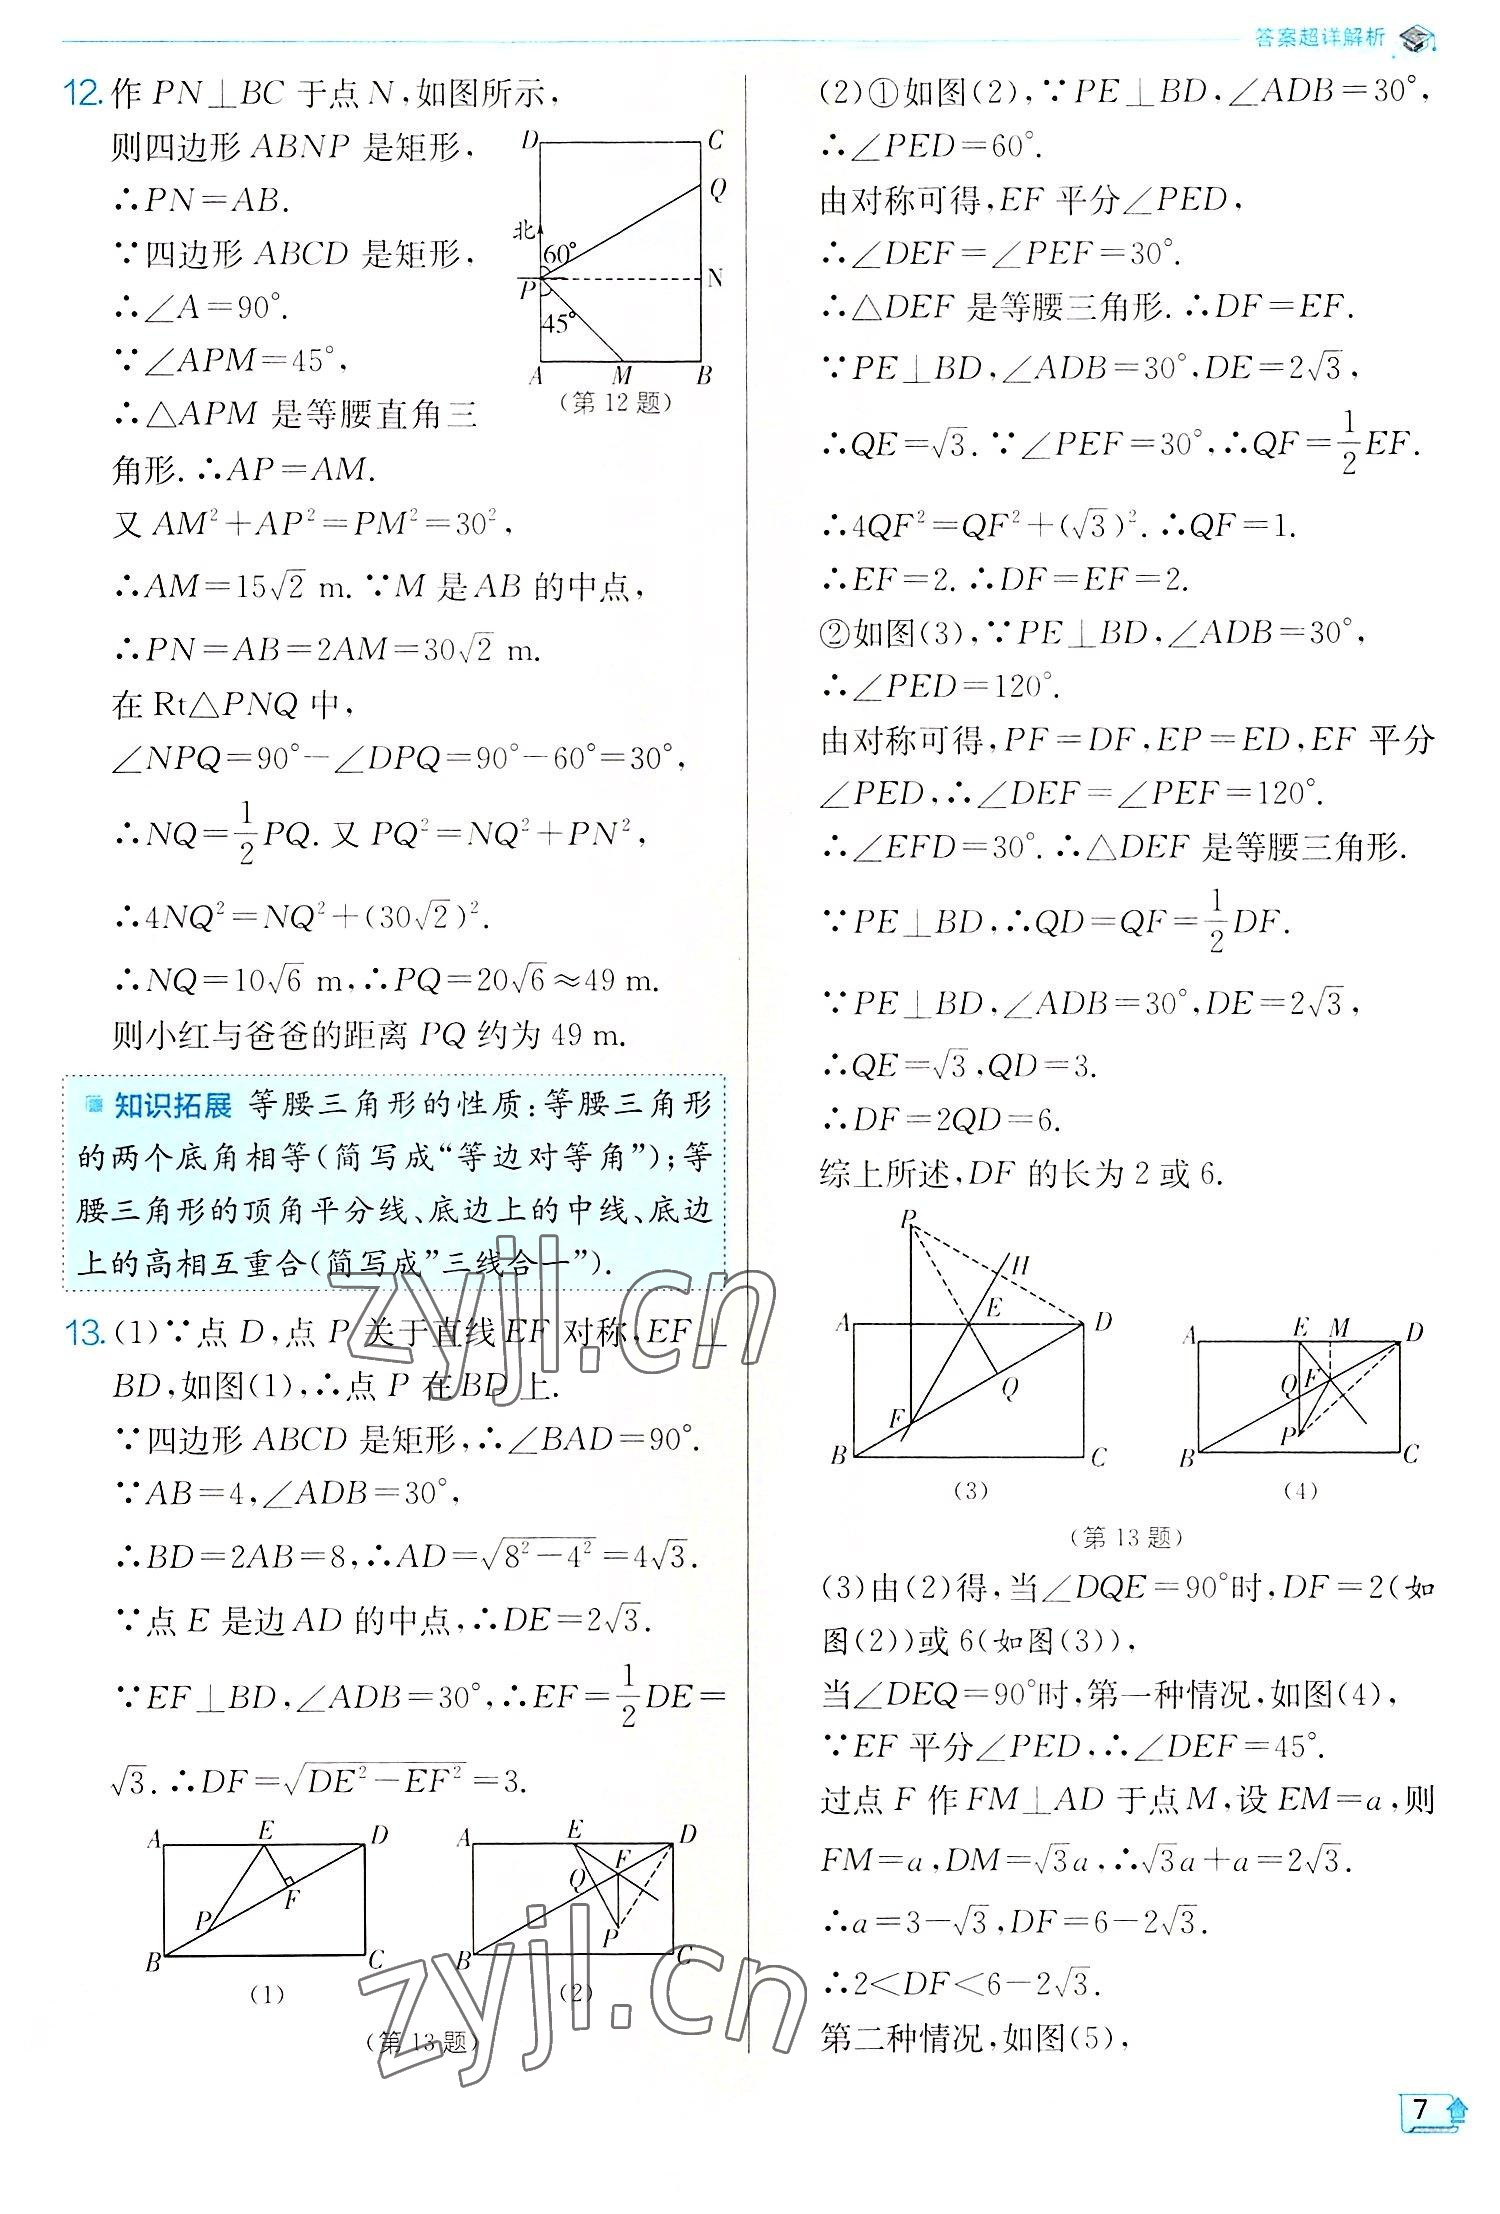 答案超详解析
12. 作 PN⊥BC 于点 N,如图所示,
则四边形 ABNP 是矩形,
∴PN=AB.
∵四边形 ABCD 是矩形,
∴∠A=90°.
∵∠APM=45°,
∴△APM 是等腰直角三
角形. ∴AP=AM.
D C
Q
北
60°
P N
45°
A M B
(第 12 题)
又 AM²+AP²=PM²=30²,
∴AM=15√2 m. ∵M 是 AB 的中点,
∴PN=AB=2AM=30√2 m.
在 Rt△PNQ 中,
∠NPQ=90°-∠DPQ=90°-60°=30°,
∴NQ=1/2PQ. 又 PQ²=NQ²+PN²,
∴4NQ²=NQ²+(30√2)².
∴NQ=10√6 m,∴PQ=20√6≈49 m.
则小红与爸爸的距离 PQ 约为 49 m.
知识拓展 等腰三角形的性质:等腰三角形
的两个底角相等(简写成“等边对等角”);等
腰三角形的顶角平分线、底边上的中线、底边
上的高相互重合(简写成”三线合一”).
13. (1)∵点 D,点 P 关于直线 EF 对称,EF⊥
BD,如图(1),∴点 P 在 BD 上.
∵四边形 ABCD 是矩形,∴∠BAD=90°.
∵AB=4,∠ADB=30°,
∴BD=2AB=8,∴AD=√(8²-4²)=4√3.
∵点 E 是边 AD 的中点,∴DE=2√3.
∵EF⊥BD,∠ADB=30°,∴EF=1/2DE=
√3. ∴DF=√(DE²-EF²)=3.
A E D
P F
B C
(1)
A E D
Q F
P
B C
(2)
(第 13 题)
(2)①如图(2),∵PE⊥BD,∠ADB=30°,
∴∠PED=60°.
由对称可得,EF 平分∠PED,
∴∠DEF=∠PEF=30°.
∴△DEF 是等腰三角形. ∴DF=EF.
∵PE⊥BD,∠ADB=30°,DE=2√3,
∴QE=√3. ∵∠PEF=30°,∴QF=1/2EF.
∴4QF²=QF²+(√3)². ∴QF=1.
∴EF=2. ∴DF=EF=2.
②如图(3),∵PE⊥BD,∠ADB=30°,
∴∠PED=120°.
由对称可得,PF=DF,EP=ED,EF 平分
∠PED,∴∠DEF=∠PEF=120°.
∴∠EFD=30°. ∴△DEF 是等腰三角形.
∵PE⊥BD,∴QD=QF=1/2DF.
∵PE⊥BD,∠ADB=30°,DE=2√3,
∴QE=√3,QD=3.
∴DF=2QD=6.
综上所述,DF 的长为 2 或 6.
P
H
A E D
Q
F
B C
(3)
A E M D
Q F
P
B C
(4)
(第 13 题)
(3)由(2)得,当∠DQE=90°时,DF=2(如
图(2))或 6(如图(3)),
当∠DEQ=90°时,第一种情况,如图(4),
∵EF 平分∠PED,∴∠DEF=45°.
过点 F 作 FM⊥AD 于点 M,设 EM=a,则
FM=a,DM=√3a,∴√3a+a=2√3.
∴a=3-√3,DF=6-2√3.
∴2<DF<6-2√3.
第二种情况,如图(5),
7
zyjl.cn
zyjl.cn